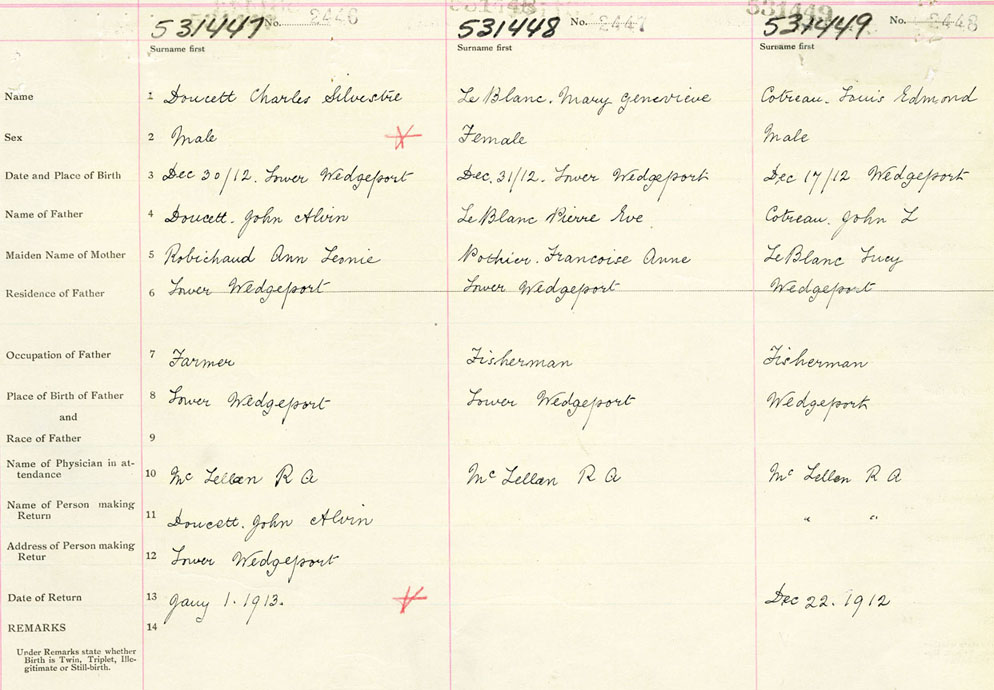 531447 No. 2446 531448 No. 2447 531449 No. 2448
Surname first Surname first Surname first
Name 1 Doucett Charles Silvestre Le Blanc. Mary Genevieve Cotreau. Louis Edmond
Sex 2 Male Female Male
Date and Place of Birth 3 Dec 30/12. Lower Wedgeport Dec. 31/12. Lower Wedgeport Dec 17/12 Wedgeport
Name of Father 4 Doucett. John Alvin Le Blanc Pierre Eve Cotreau. John L
Maiden Name of Mother 5 Robichaud Ann Leonie Pothier. Francoise Anne Le Blanc Lucy
Residence of Father 6 Lower Wedgeport Lower Wedgeport Wedgeport
Occupation of Father 7 Farmer Fisherman Fisherman
Place of Birth of Father 8 Lower Wedgeport Lower Wedgeport Wedgeport
and
Race of Father 9
Name of Physician in at-
tendance 10 Mc Lellan R A Mc Lellan R A Mc Lellan R A
Name of Person making
Return 11 Doucett. John Alvin " "
Address of Person making
Retur 12 Lower Wedgeport
Date of Return 13 Jany 1. 1913. Dec 22. 1912
REMARKS 14
Under Remarks state whether
Birth is Twin, Triplet, Ille-
gitimate or Still-birth.